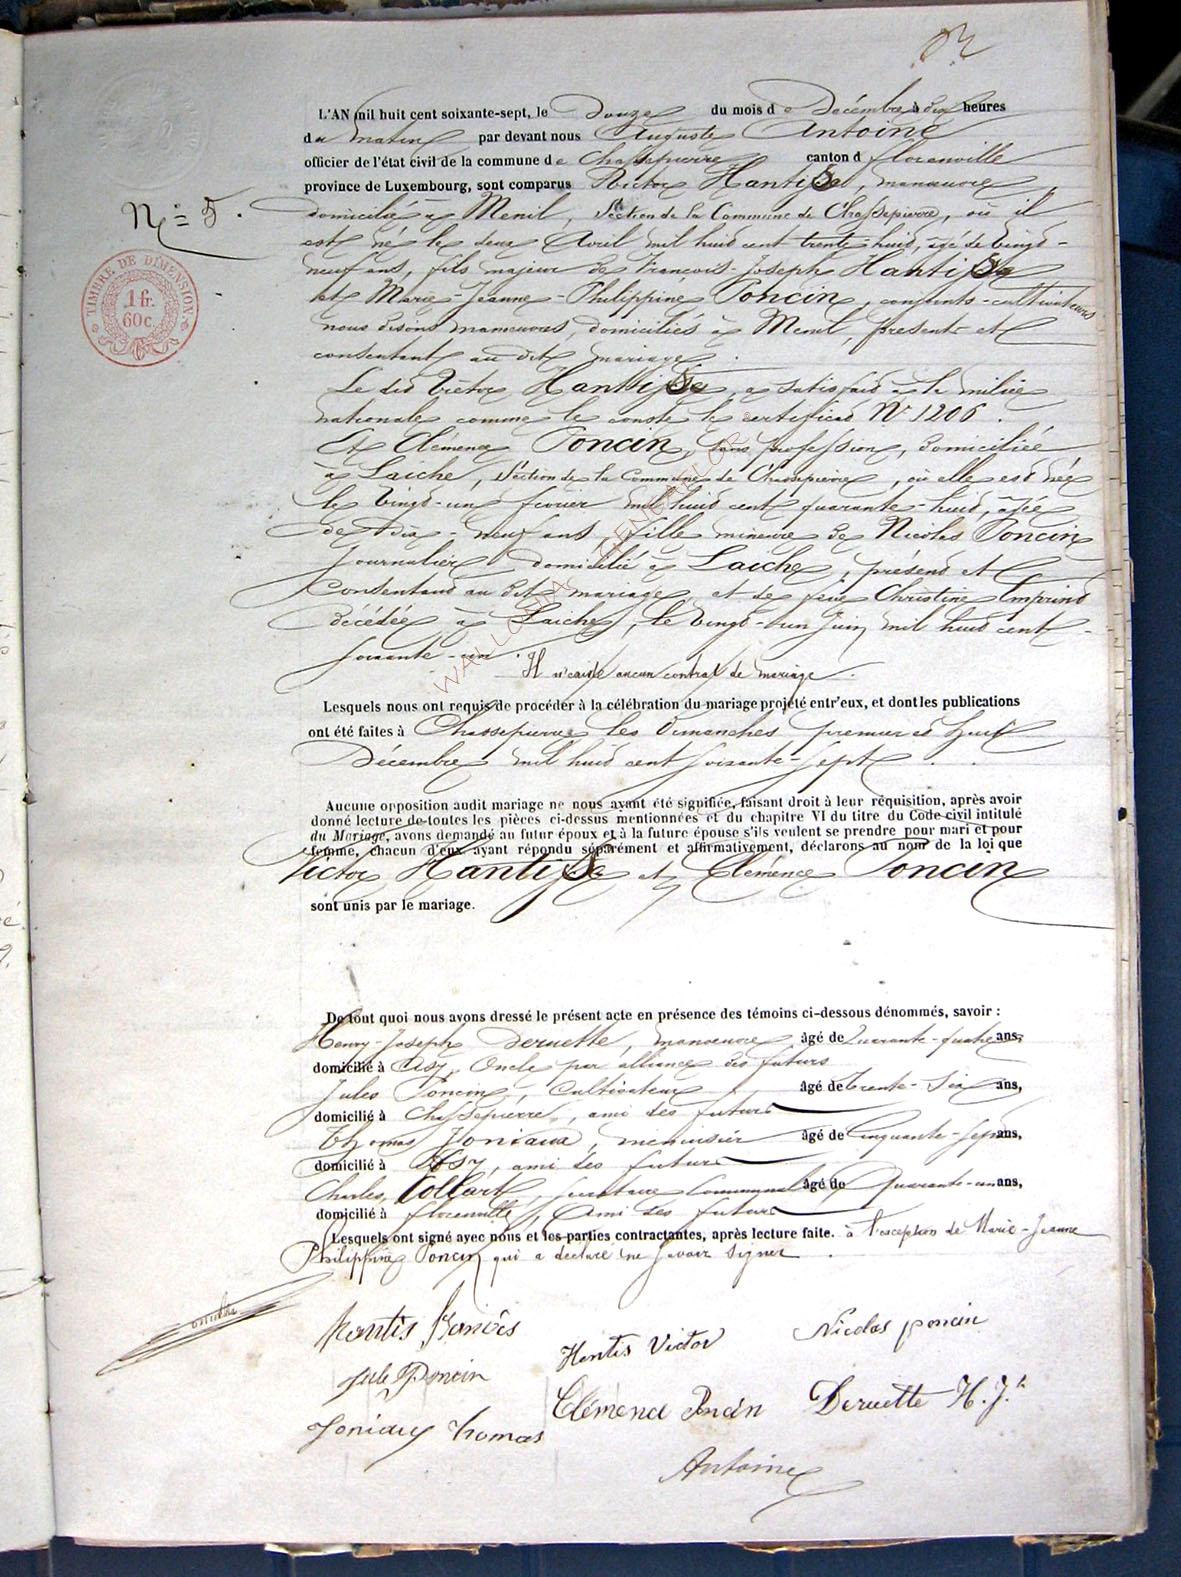 L'AN mil huit cent soixante-sept, le Douze du mois de Décembre à dix heures
du matin par devant nous Auguste Antoine
officier de l'état civil de la commune de Chassepierre canton d florenville
province de Luxembourg, sont comparus Victor Hantisse, manœuvre,
domicilié à Menil, Section de la Commune de Chassepierre, où il
est né le deux Avril mil huit cent trente huit, agé de Vingt-
neuf ans, fils majeur de François-Joseph Hantisse
et Marie-Jeanne-Philippine Poncin, conjoints-cultivateurs
nous disons manœuvres, domiciliés à Menil, present et
consentant au dit mariage.
Le dit Victor Hantisse, a satisfait à la milice
nationale comme le conste le certificat N° 1206.
Et Clémence Poncin, sans profession, domiciliée
à Laiche, Section de la Commune de Chassepierre, où elle est née
le Vingt-un février mil huit cent quarante-huit, agée
de dix-neuf ans, fille mineure de Nicolas Poncin
Journalier domicilié à Laiche, présent et
Consentant au dit mariage, et de feue Christine Imprind
décédée à Laiche, le Vingt-un Juin mil huit cent
soixante-un. Il n'existe aucun contrat de mariage.
Lesquels nous ont requis de procéder à la célébration du mariage projeté entr'eux, et dont les publications
ont été faites à Chassepierre les Dimanches premier et huit
Décembre mil huit cent soixante-sept.
Aucune opposition audit mariage ne nous ayant été signifiée, faisant droit à leur réquisition, après avoir
donné lecture de toutes les pièces ci-dessus mentionnées et du chapitre VI du titre du Code civil intitulé
du Mariage, avons demandé au futur époux et à la future épouse s'ils veulent se prendre pour mari et pour
femme, chacun d'eux ayant répondu séparément et affirmativement, déclarons au nom de la loi que
Victor Hantisse et Clémence Poncin
sont unis par le mariage.
De tout quoi nous avons dressé le présent acte en présence des témoins ci-dessous dénommés, savoir :
Henry-Joseph Deruette, manœuvre, âgé de Quarante-quatre ans,
domicilié à Azy, Oncle par alliance des futurs
Jules Poncin, Cultivateur, âgé de trente-six ans,
domicilié à Chassepierre, ami des futurs
Thomas Joniaux, menuisier âgé de Cinquante-sept ans,
domicilié à Azy, ami des futurs
Charles Collart, secrétaire Communal âgé de Quarante-un ans,
domicilié à florenville, Ami des futurs
Lesquels ont signé avec nous et les parties contractantes, après lecture faite. à l'exception de Marie-Jeanne
Philippine Poncin qui a déclaré ne savoir signer.
N° 5.
TIMBRE DE DIMENSION
1 fr.
60 c.
WALLONIA GENEALOR
Hantis françois
Hentis Victor
Nicolas poncin
Jule Poncin
Clémence Poncin
Deruette H. Jh
Joniaux thomas
Antoine